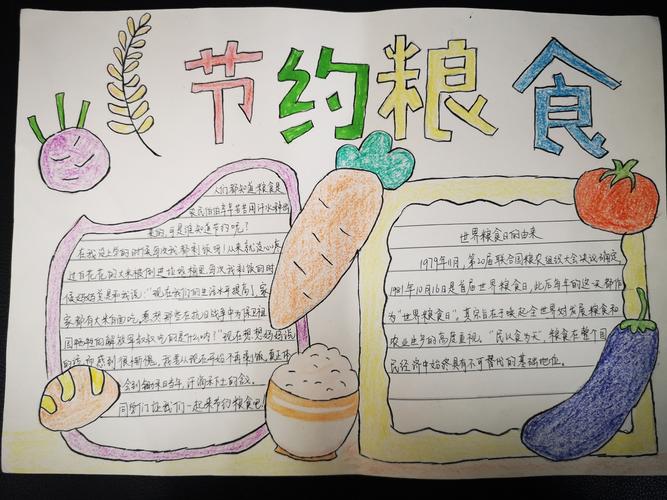 节约粮食
人们都知道粮食是
农民伯伯辛辛苦苦用汗水种出
来的,可是谁知道节约呢?
在我没上学的时候每次我都剩饭,从来就没心疼
过白花花的大米被倒进垃圾桶里,每次我剩饭的时
候妈妈总是和我说:"现在我们的生活水平提高了,家
家都有大米白面吃,
现在想想妈妈说
的话,感到很惭愧,我要从现在开始不再剩饭,真正体
会到锄禾日当午,汗滴禾下土的含义。
同学们让我们一起来节约粮食吧!
世界粮食日的由来
1979年11月,第20届联合国粮农组织大会决议确定,
1981年10月16日是首届世界粮食日,此后每年的这一天都作
为"世界粮食日"。其宗旨在于唤起全世界对发展粮食和
农业生产的高度重视。"民以食为天",粮食在整个国
民经济中始终具有不可替代的基础地位。